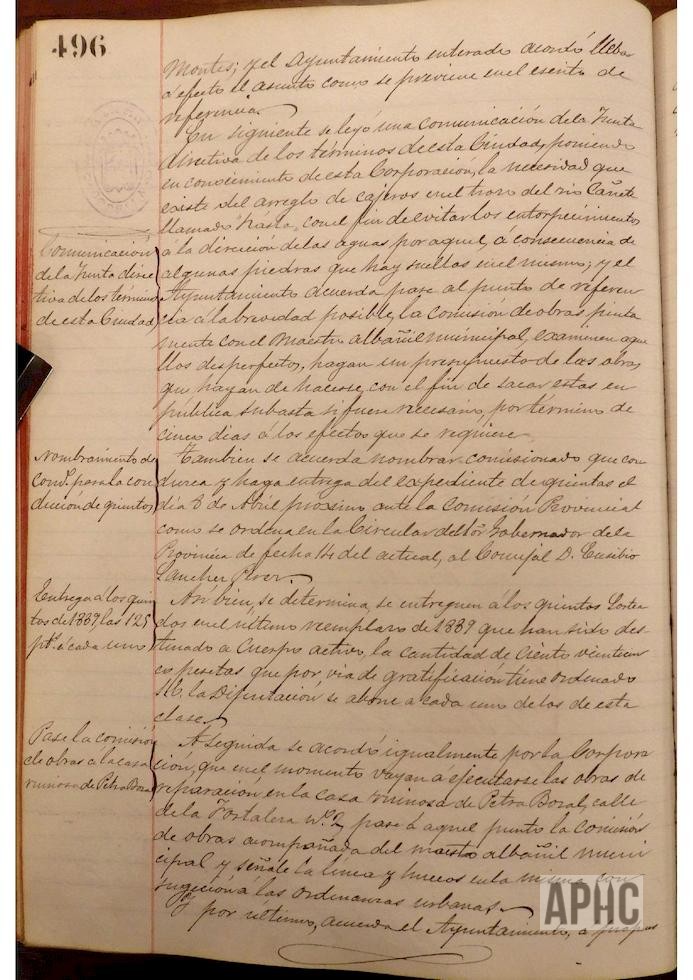 496
Montes; y el Ayuntamiento enterado acordó llebar
á efecto el asunto como se previene en el escrito de
referencia.
En siguiente se leyó una comunicación de la Junta
directiva de los términos de esta Ciudad, poniendo
en conocimiento de esta Corporación, la necesidad que
existe del arreglo de cajeros en el trozo del rio Cañete
llamado Rasta, con el fin de evitar los entorpecimientos
á la dirección de las aguas por aquel, á consecuencia de
algunas piedras que hay sueltas en el mismo; y el
Ayuntamiento acuerda pase al punto de referen
cia á la brevedad posible, la comisión de obras junta
mente con el Maestro albañil municipal, examinen aque
llos desperfectos, hagan un presupuesto de las obras
que hayan de hacerse, con el fin de sacar estas en
pública subasta si fuere necesario, por término de
cinco dias á los efectos que se requiere.
Comunicación
de la Junta direc
tiva de los términos
de esta Ciudad
Tambien se acuerda nombrar comisionado que con
duzca y haga entrega del expediente de quintas el
dia 8 de Abril proximo ante la Comisión Provincial
como se ordena en la Circular del Sor Gobernador de la
Provincia de fecha 14 del actual, al Concejal D. Eusebio
Sanchez
Nombramiento de
Comdo. para la con
ducción de quintos
Asi bien, se determina, se entreguen a los quintos Sortea
dos en el último reemplazo de 1889 que han sido des
tinado a Cuerpo activo, la cantidad de Ciento veinticin
co pesetas que por via de gratificación tiene ordenado
la Diputación se abone a cada uno de los de esta
clase.
Entrega a los quin
tos de 1889, las 125
pts. á cada uno
A seguida se acordó igualmente por la Corpora
ción, que en el momento vayan a ejecutarse las obras de
reparación en la casa ruinosa de Petra Bozal, calle
de la Fortaleza nº 2, pase á aquel punto la Comisión
de obras acompañada del maestro albañil muni
cipal y señale la linea y huecos en la misma con
sugeción á las ordenanzas urbanas.
Pase la comisión
de obras á la casa
ruinosa de Petra Bozal
Y por ultimo, acuerda el Ayuntamiento, a propues
APHC